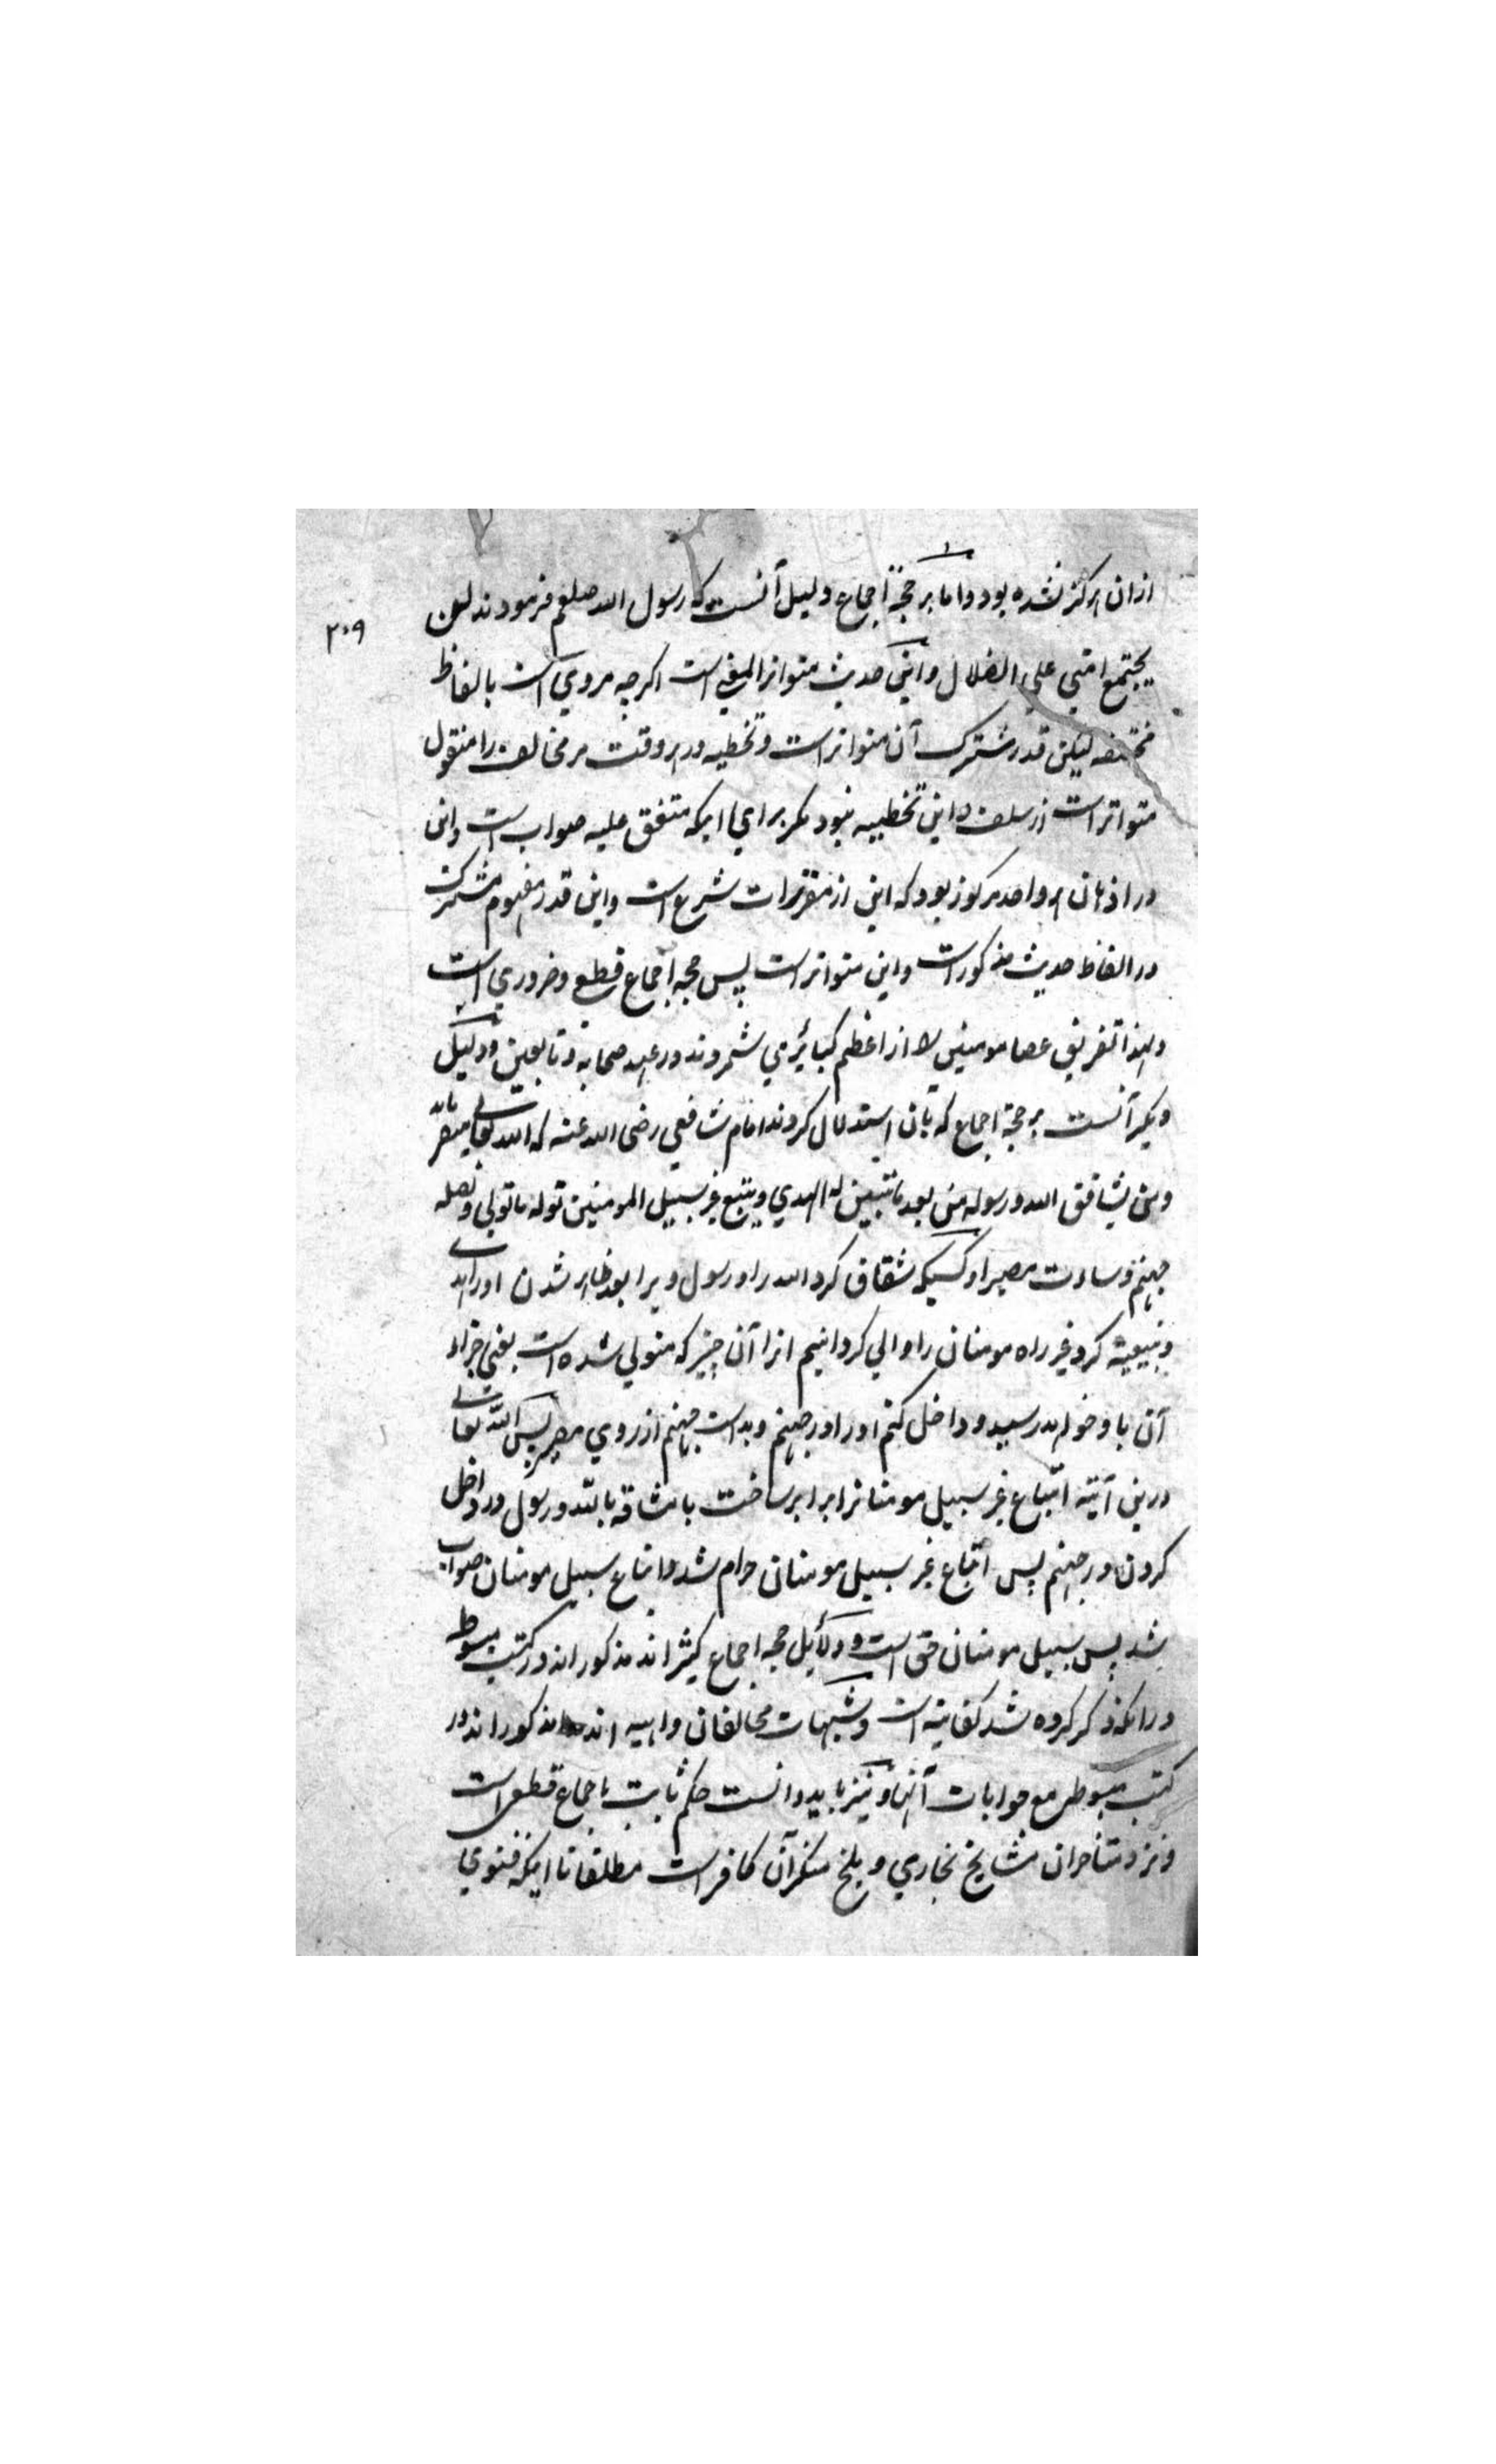 ازان هرکز نشده بود و اما بر حجة اجماع دلیل آنست که رسول الله صلعم فرمودند لن
۲۰۹
یجتمع امتی علی الضلال و این حدیث متواتر المعنی است اکرچه مروی است بالفاظ
مختلفه لیکن قدر مشترک آن متواتر است و تخطیه در هر وقت مر مخالف را منقول
متواتر است از سلف و این تخطییه نبود مکر برای اینکه متفق علیه صواب است و این
در اذهان هر واحد مرکوز بود که این از مقررات شرع است و این قدر مفهوم مشترک
در الفاظ حدیث مذکور است و این متواتر است پس حجه اجماع قطع و ضروری است
و لهذا تفریق عصا مومنین را از اعظم کبائر می شمردند در عهد صحابه و تابعین و دلیل
دیکر آنست بر حجة اجماع که بان استدلال کردند امام شافعی رضی الله عنه که الله تعالی میفرماید
و من یشاقق الله و رسوله من بعد ما تبین له الهدی و یتبع غیر سبیل المومنین نوله ما تولی و نصله
جهنم و ساءت مصیرا و کسیکه شقاق کرد الله را و رسول ویرا بعد ظاهر شدن او را هدی
و تبیعیة کرد غیر راه مومنان را والی کردانیم انرا آن چیز که متولی شده است یعنی جزاء
آن باو خواهد رسید و داخل کنم او را در جهنم و بد است جهنم از روی مصیر پس الله تعالی
درین آیته اتباع غیر سبیل مومنانرا برابر ساخت با مشاقه بالله و رسول و در داخل
کردن در جهنم پس اتباع غیر سبیل مومنان حرام شد و اتباع سبیل مومنان صواب
شد پس سبیل مومنان حق است و دلایل حجه اجماع کثیر اند مذکور اند در کتب مبسوطه
در انکه ذکر کرده شد کفایة است و شبهات مخالفان واهیه اند مذکور اند در
کتب مبسوطه مع جوابات آنها و نیز باید دانست حکم ثابت باجماع قطعی است
و نزد متأخران مشایخ بخاری و بلخ منکر آن کافر است مطلقا تا اینکه فتوی